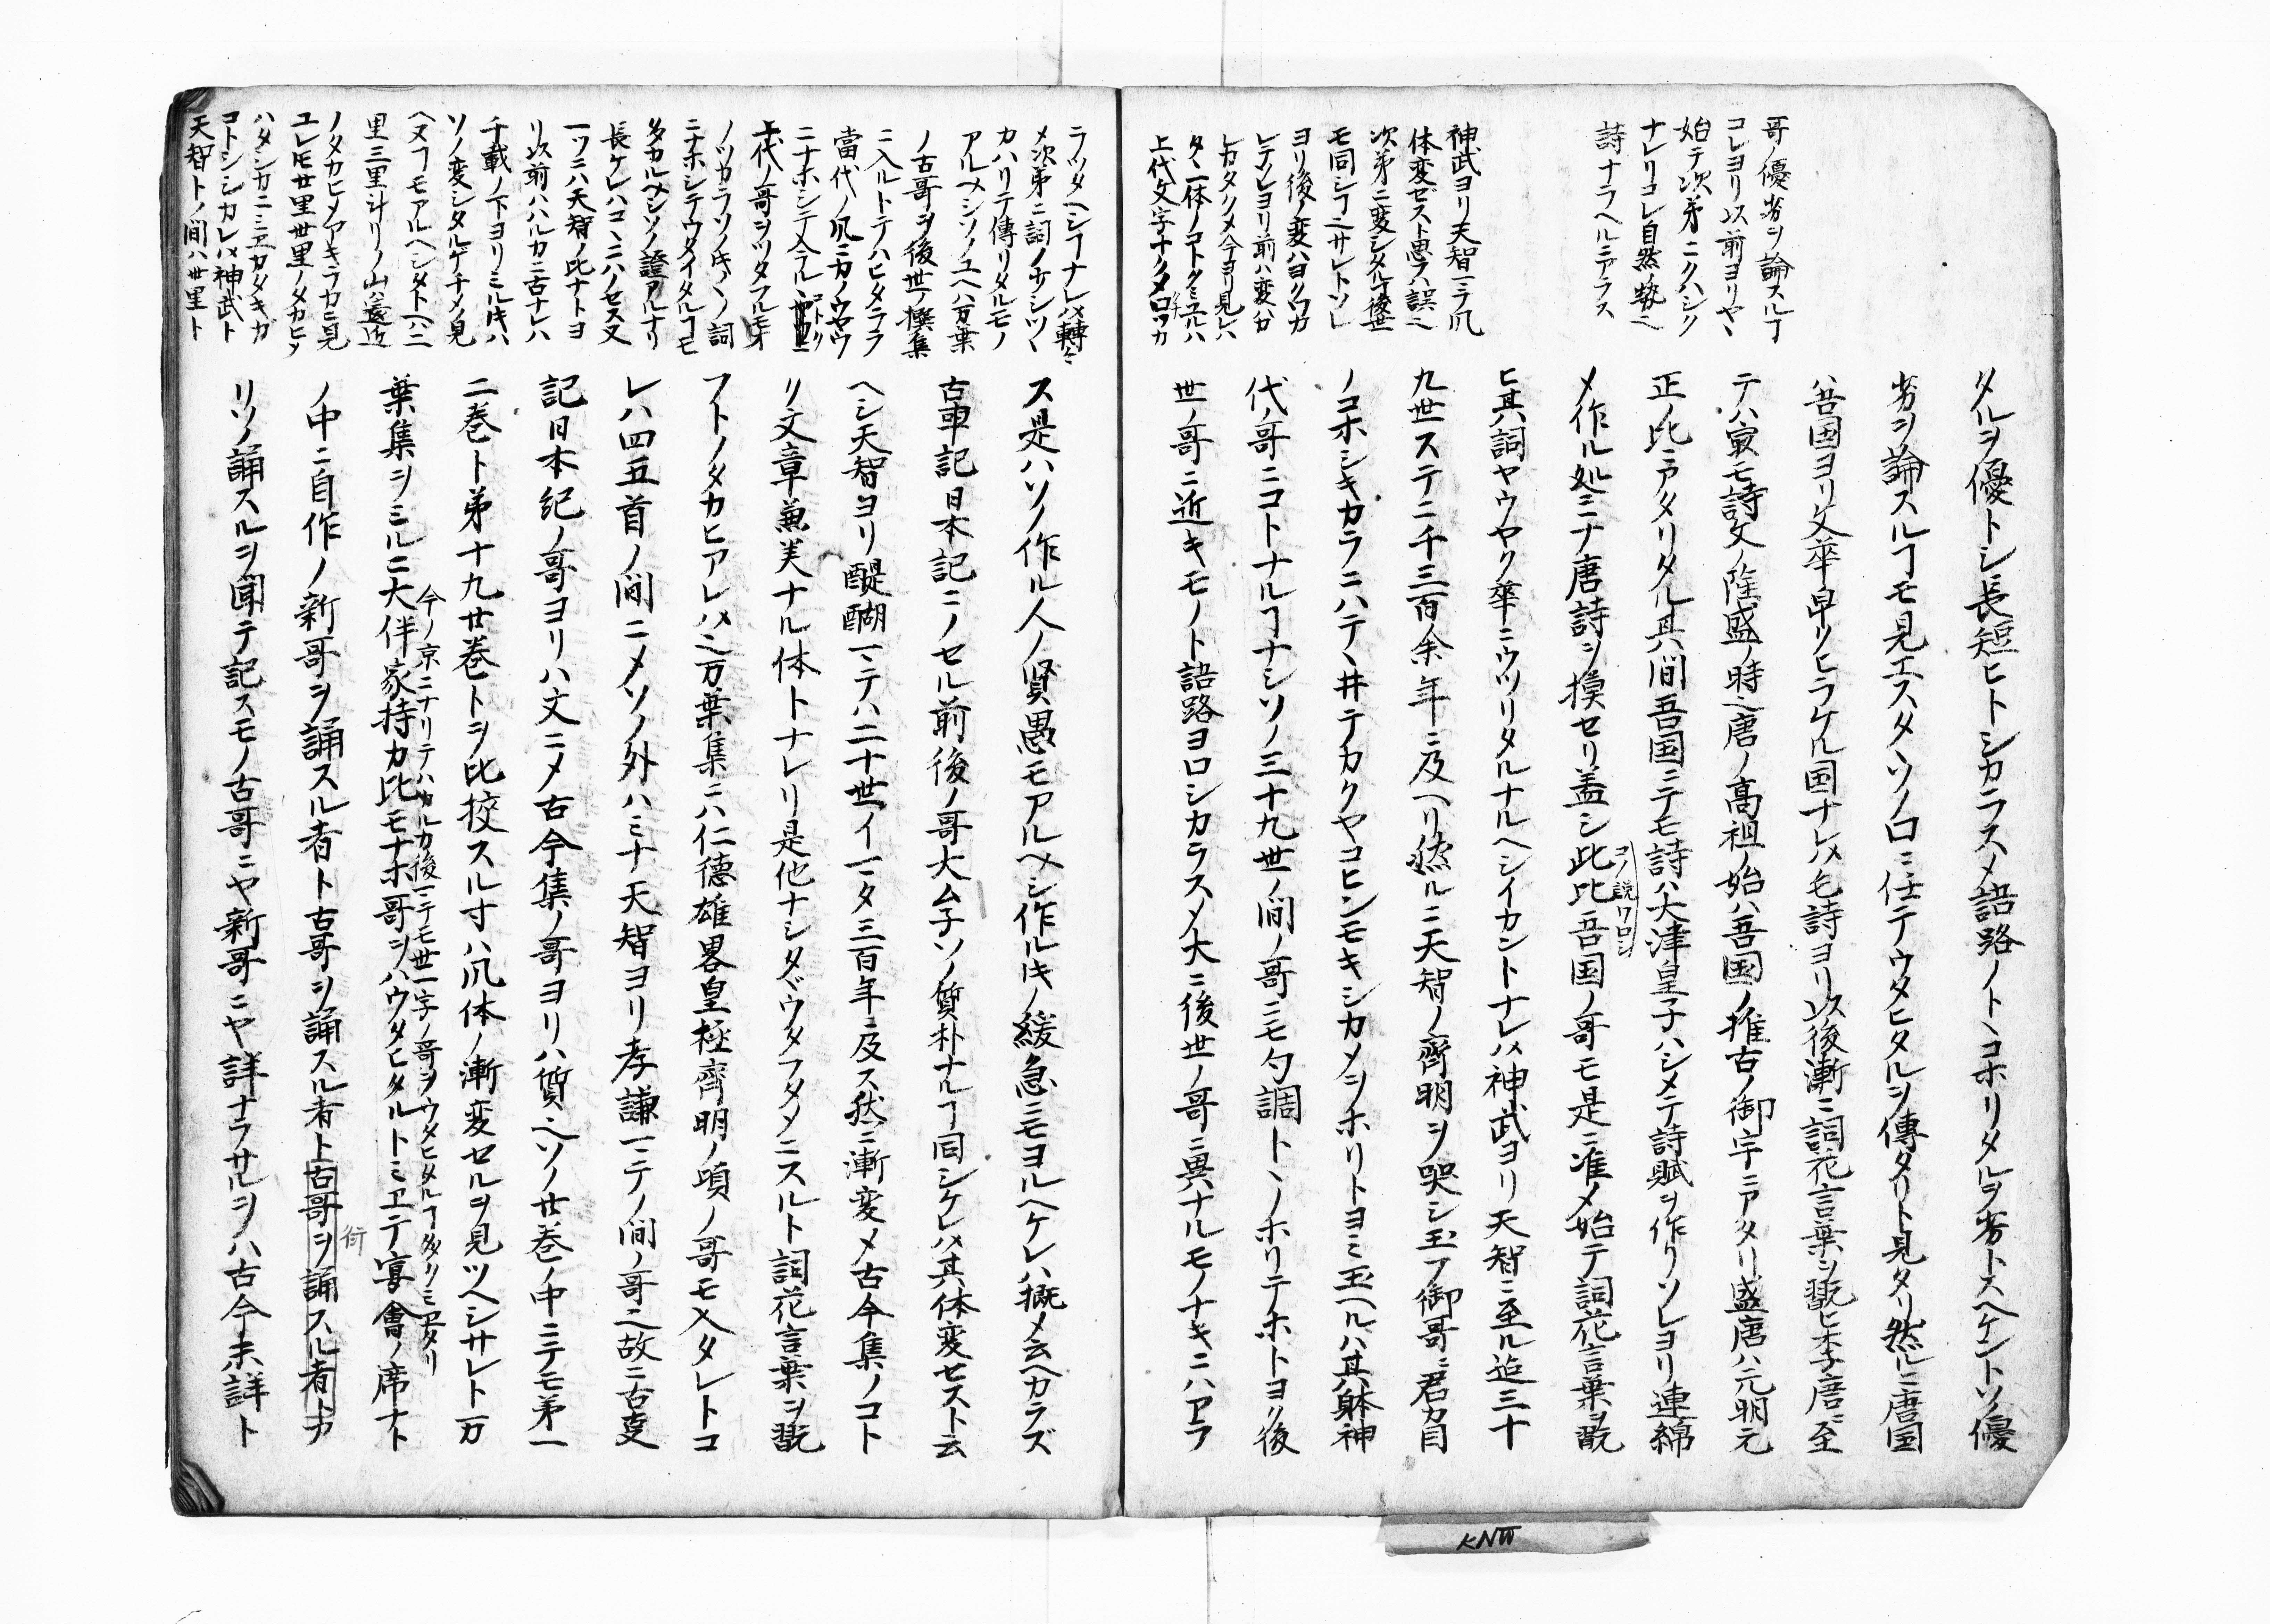 哥ノ優劣ヲ論スルヿ
コレヨリ以前ヨリヤヽ
始テ次第ニクハシク
ナレリコレ自然ノ勢也
詩ナラヘルニアラス
神武ヨリ天智マテ風
体変セスト思フハ誤也
次第ニ変シタルヿ後世
モ同シヿ也サレトソレ
ヨリ後ノ変ハヨクワカ
レテソレヨリ前ハ変ハカ
レカタクメ今ヨリ見レハ
タヽ一体ノコトクミユルハ
上代文字ナクメ口ツカ
タルヲ優トシ長短ヒトシカラスメ語路ノトヽコホリタルヲ劣トスヘケントソノ優
劣ヲ論スルヿモ見エスタヽソノ口ニ任テウタヒタルヲ傳タリト見タリ然ルニ唐国
ハ吾国ヨリ文華早クヒラケル国ナレハ毛詩ヨリ以後漸ニ詞花言葉ヲ翫ヒ李唐ニ至
テハ最モ詩文ノ隆盛ノ時也唐ノ高祖ノ始ハ吾国ノ推古ノ御宇ニアタリ盛唐ハ元明元
正ノ比ニアタリタル其間吾国ニテモ詩ハ大津皇子ハシメテ詩賦ヲ作リソレヨリ連綿
コノ説ワロシ
メ作ル処ミナ唐詩ヲ摸セリ盖シ此比吾国ノ哥モ是ニ准メ始テ詞花言葉ヲ翫
ヒ其詞ヤウヤク華ニウツリタルナルヘシイカントナレハ神武ヨリ天智ニ至ル迄三十
九世ステニ千三百余年ニ及ヘリ然ルニ天智ノ齊明ヲ哭シ玉フ御哥ニ君カ目
ノコホシキカラニハテヽ井テカクヤコヒンモキミカメヲホリトヨミ玉ヘルハ其躰神
代ノ哥ニコトナルヿナシソノ三十九世ノ間ノ哥ニモ勺調トヽノホリテホトヨク後
世ノ哥ニ近キモノト語路ヨロシカラスメ大ニ後世ノ哥ニ異ナルモノナキニハアラ
ラツタヘシヿナレハ轉々
メ次第ニ詞ノサシツヽ
カハリテ傳リタルモノ
アルヘシソノユヘハ万葉
ノ古哥ヲ後世ノ撰集
ニ入ルトテハヒタララ
當代ノ風ニカノウヤウ
ニナホシテ入ラルヽコトク
上代ノ哥ヲツタフルモオ
ノツカラソノ時々ノ詞
ニナホシテウタイタルヿモ
多カルヘシソノ證アルナリ
長ケレハコヽニハノセス又
一ツニハ天智ノ比ナトヨ
リ以前ハハルカニ古ナレハ
千載ノ下ヨリミル時ハ
ソノ変シタルケチメノ見
ヘヌヿモアルヘシタトヘハ二
里三里斗リノ山ハ遠近
ノタカヒメアキラカニ見
ユレ𪜈廿里丗里ノタカヒメ
ハタシカニミエカタキガ
コトシシカレハ神武ト
天智トノ間ハ丗里ト
ス是ハソノ作ル人ノ賢愚モアルヘシ作ル時ノ緩急ニモヨルヘケレハ概メ云ヘカラズ
古事記日本記ニノセル前後ノ哥大ムネソノ質朴ナルヿ同シケレハ其体変セスト云
ヘシ天智ヨリ醍醐マテハ二十世イマタ三百年ニ及ス然ニ漸変メ古今集ノコト
リ文章兼美ナル体トナレリ是他ナシタヾウタフタメニスルト詞花言葉ヲ翫
フトノタカヒアレハ也万葉集ニハ仁徳雄畧皇極齊明ノ頃ノ哥モ入タレトコ
レハ四五首ノ間ニメソノ外ハミナ天智ヨリ孝謙マテノ間ノ哥也故ニ古事
記日本紀ノ哥ヨリハ文ニメ古今集ノ哥ヨリハ質也ソノ廿巻ノ中ニテモ第一
二巻ト第十九廿巻トヲ比挍スル寸ハ風体ノ漸変セルヲ見ツヘシサレト万
今ノ京ニナリテハルカ後マテモ丗一字ノ哥ヲウタヒタルヿ多クミエタリ
葉集ヲミルニ大伴家持カ比モナホ哥ヲハウタヒタルトミエテ宴會ノ席ナト
ノ中ニ自作ノ新哥ヲ誦スル者ト古哥ヲ誦スル者ト古哥ヲ誦スル者トカ
衍
リソノ誦スルヲ聞テ記スモノ古哥ニヤ新哥ニヤ詳ナラサルヲハ古今未詳ト
KN